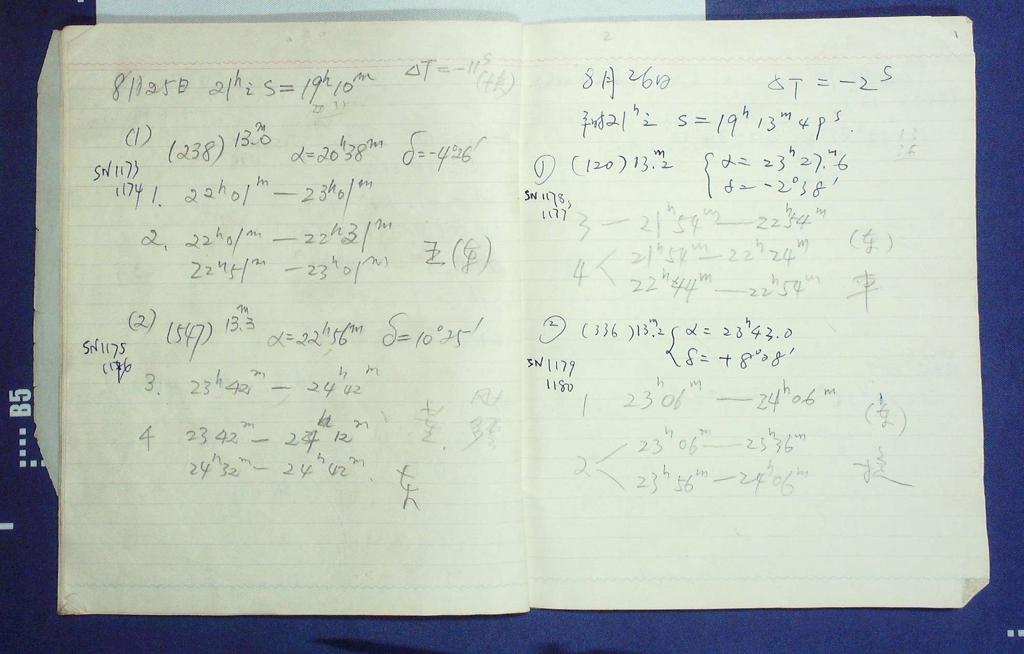 8月25日 21ʰ S=19ʰ10ᵐ ΔT=-11ˢ
(1) (238) 13.ᵐ0 α=20ʰ38ᵐ δ=-4°26′
SN1173
1174
1. 22ʰ01ᵐ — 23ʰ01ᵐ
2. 22ʰ01ᵐ — 22ʰ31ᵐ
22ʰ51ᵐ — 23ʰ01ᵐ
(2) (547) 13.ᵐ3 α=22ʰ56ᵐ δ=10°25′
SN1175
1176
3. 23ʰ42ᵐ — 24ʰ42ᵐ
4 23 42ᵐ — 24ʰ12ᵐ
24ʰ32ᵐ — 24ʰ42ᵐ.
8月26日 ΔT=-2ˢ
21ʰ S=19ʰ13ᵐ49ˢ.
① (120) 13.ᵐ2 { α=23ʰ27.ᵐ6
δ=-2°38′
SN1178,
1177
3 — 21ʰ54ᵐ — 22ʰ54ᵐ
4 < 21ʰ54ᵐ — 22ʰ24ᵐ
22ʰ44ᵐ — 22ʰ54ᵐ
② (336) 13.ᵐ2 { α=23ʰ43.0
δ=+8°08′
SN1179
1180
1 23ʰ06ᵐ — 24ʰ06ᵐ
2 < 23ʰ06ᵐ — 23ʰ36ᵐ
23ʰ56ᵐ — 24ʰ06ᵐ
B5